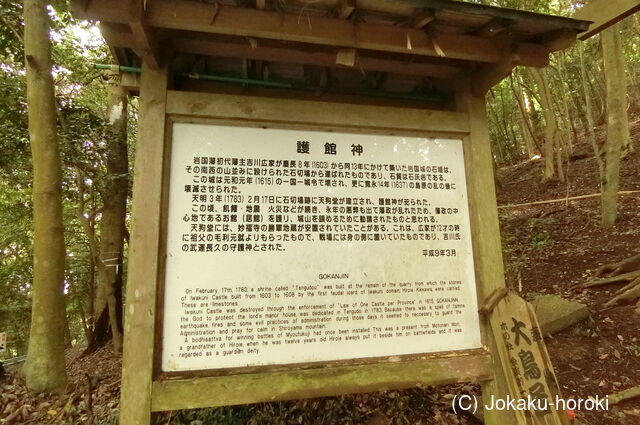 護館神
岩国藩初代藩主吉川広家が慶長8年(1603)から同13年にかけて築いた岩国城の石垣は、
その南西の山並みに設けられた石切場から運ばれたものであり、石質は石灰岩である。
この城は元和元年(1615)の一国一城令で壊され、更に寛永14年(1637)の島原の乱の後に
壊滅させられた。
天明3年(1783)2月17日に石切場跡に天狗堂が建立され、護館神が祀られた。
この頃、飢饉・地震 火災などが続き、永年の悪弊も出て藩政が乱れたため、藩政の中
心地であるお館(居館)を護り、城山を鎮めるために勧請されたものと思われる。
天狗堂には、妙福寺の勝軍地蔵が安置されていたことがある。これは、広家が12才の時
に祖父の毛利元就よりもらったもので、戦場には身の側に置いていたものであり、吉川氏
の武運長久の守護神とされた。
平成9年3月
GOKANJIN
On February 17th, 1783, a shrine called "Tengudou" was built at the remain of the quarry from which the stones
of Iwakuni Castle built from 1603 to 1608 by the first feudal loard of Iwakuni domain Hiroie Kikkawa, were carried.
These are limestones.
Iwakuni Castle was destroyed through the enforcement of "Law of One Castle per Province" in 1615. GOKANJIN,
the God to protect the lord's manor house, was dedicated in Tengudo in 1783. Because there was a spell of famine,
earthquake, fires and some evil practices of administration during those days, it seemed to neccesary to guard the
Administration and pray for calm in Shiroyama mountain.
A bodhisattva for winning battles of Myoufukuji had once been installed. This was a present from Motonari Mori,
a grandfather of Hiroie, when he was twelve years old. Hiroie always put it beside him on battlefields and it was
regarded as a guardian deity.
(C) Jokaku-horoki